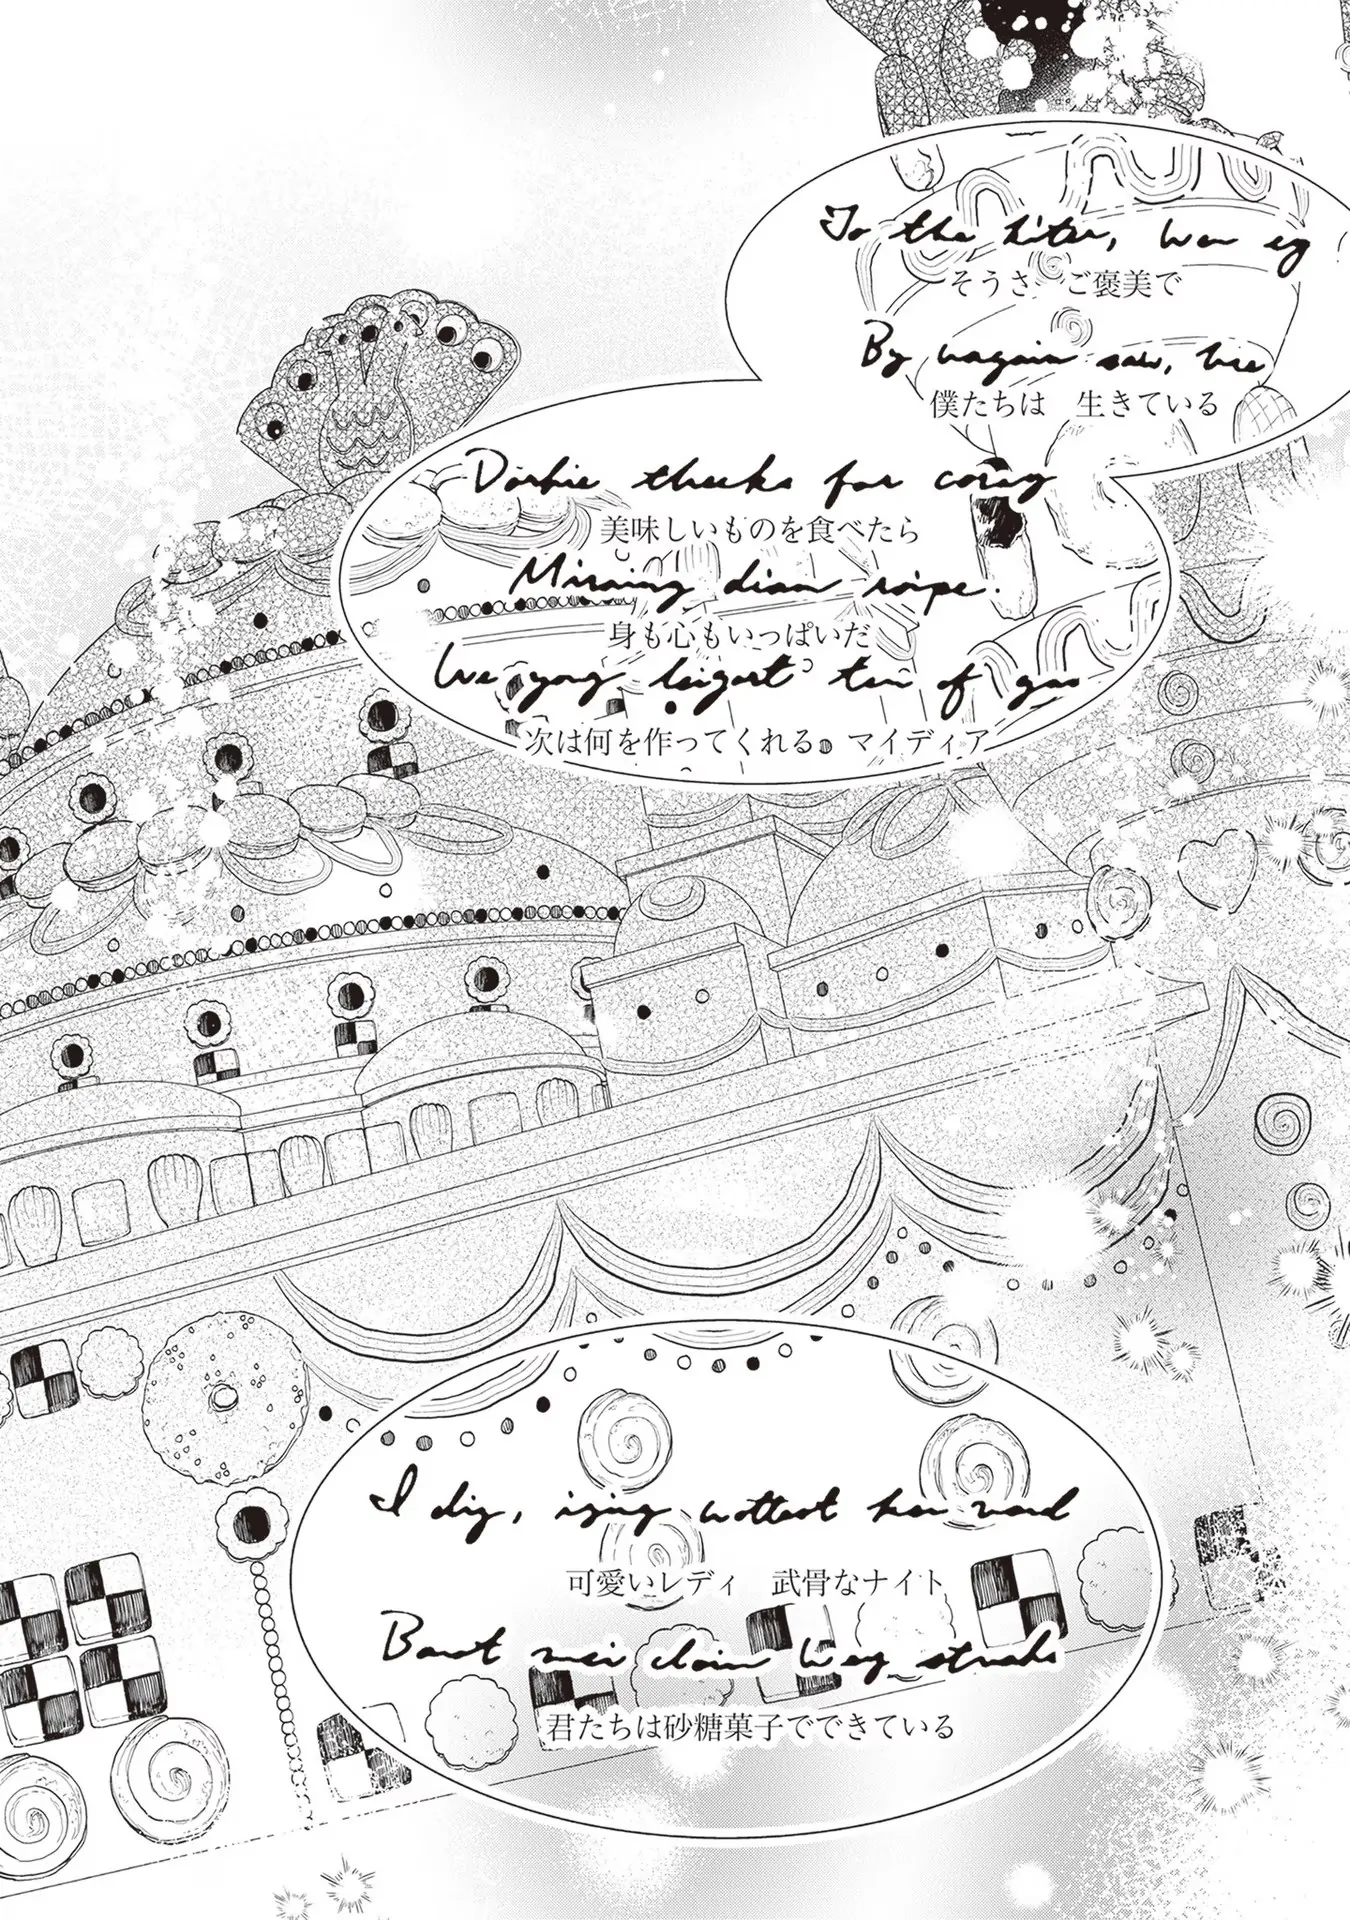 To the hiter, wen eg
そうさ ご褒美で
By wagain saw, hie
僕たちは 生きている
Dorhie theeks for coray
美味しいものを食べたら
Miraing dian roipe.
身も心もいっぱいだ
We yong leigert ten of gas
次は何を作ってくれる。マイディア
I dig, izing wottest her vard
可愛いレディ 武骨なナイト
Barot mei clain Way strahs
君たちは砂糖菓子でできている